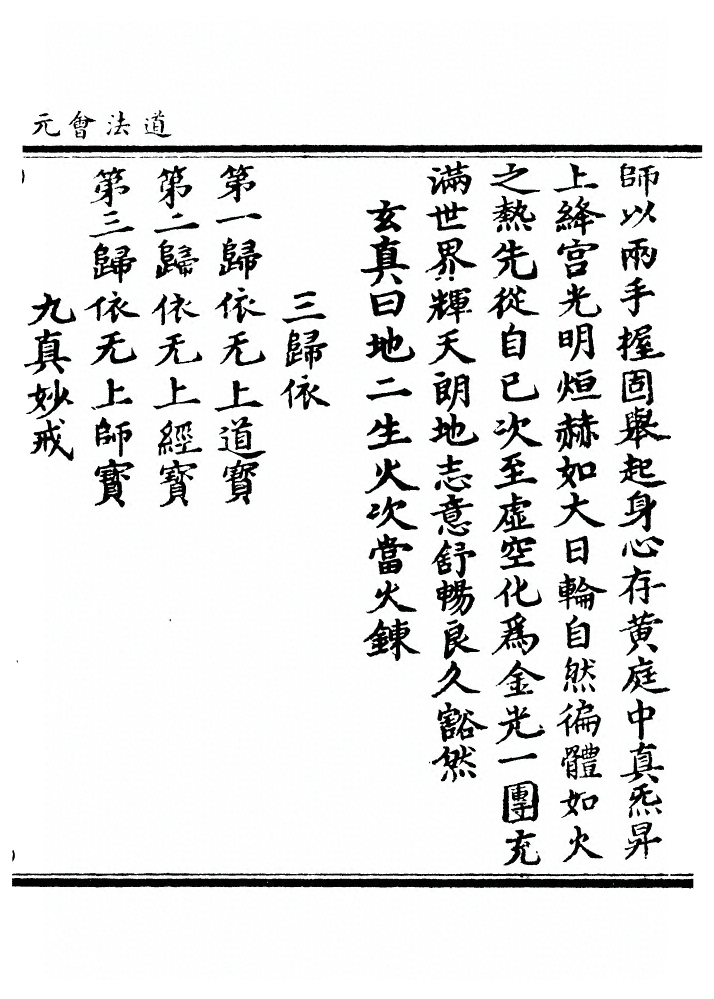 道法會元
師以兩手握固舉起身心存黄庭中真炁昇
上絳宫光明烜赫如大日輪自然徧體如火
之熱先從自己次至虛空化爲金光一團充
滿世界輝天朗地志意舒暢良久豁然
玄真曰地二生火次當火鍊
三歸依
第一歸依无上道寳
第二歸依无上經寳
第三歸依无上師寳
九真妙戒